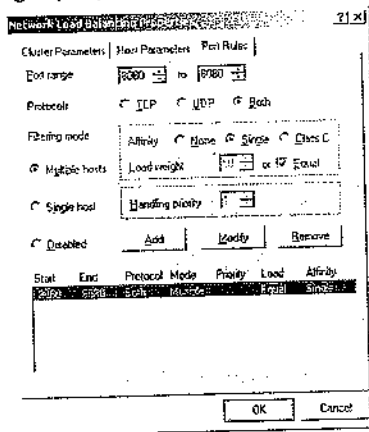 Network Load Balancing Properties ? X
Cluster Parameters Host Parameters Port Rules
Port range 8080 to 8080
Protocols TCP UDP Both
Filtering mode
Affinity None Single Class C
Multiple hosts Load weight or Equal
Single host Handling priority 1
Disabled Add Modify Remove
Start End Protocol Mode Priority Load Affinity
8080 8080 Both Multiple Equal Single
OK Cancel